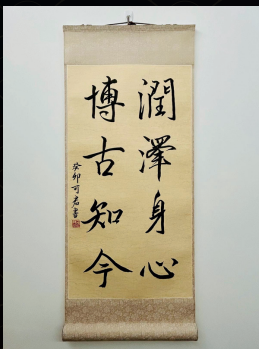 润澤身心
博古知今
癸卯可君書